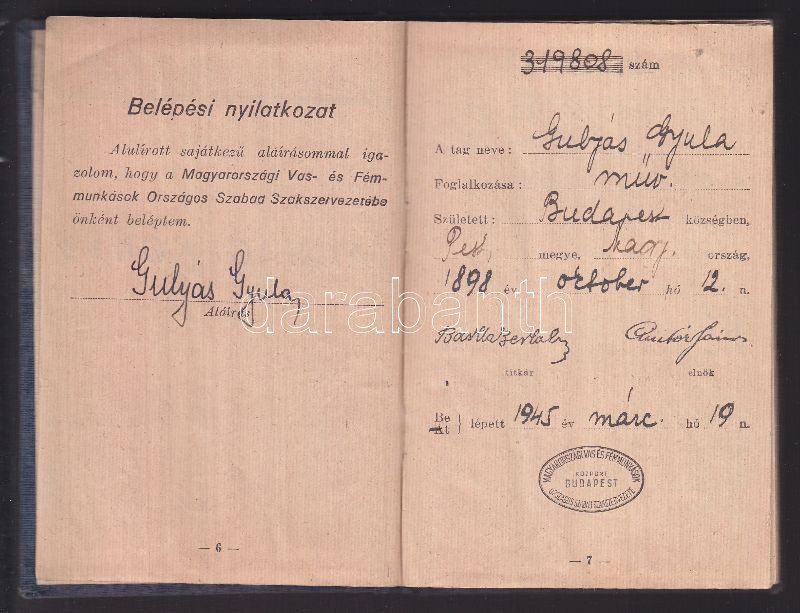 Belépési nyilatkozat
Alulírott sajátkezű aláírásommal iga-
zolom, hogy a Magyarországi Vas- és Fém-
munkások Országos Szabad Szakszervezetébe
önként beléptem.
Gulyás Gyula
Aláírás
— 6 —
319808 szám
A tag neve: Gulyás Gyula
Foglalkozása: műv.
Született: Budapest községben,
Pest, megye, Magy. ország,
1898 év október hó 12. n.
titkár elnök
Be
Át } lépett 1945 év márc. hó 19 n.
MAGYARORSZÁGI VAS ÉS FÉMMUNKÁSOK
KÖZPONT
BUDAPEST
ORSZÁGOS SZABAD SZAKSZERVEZETE
— 7 —
darabanth